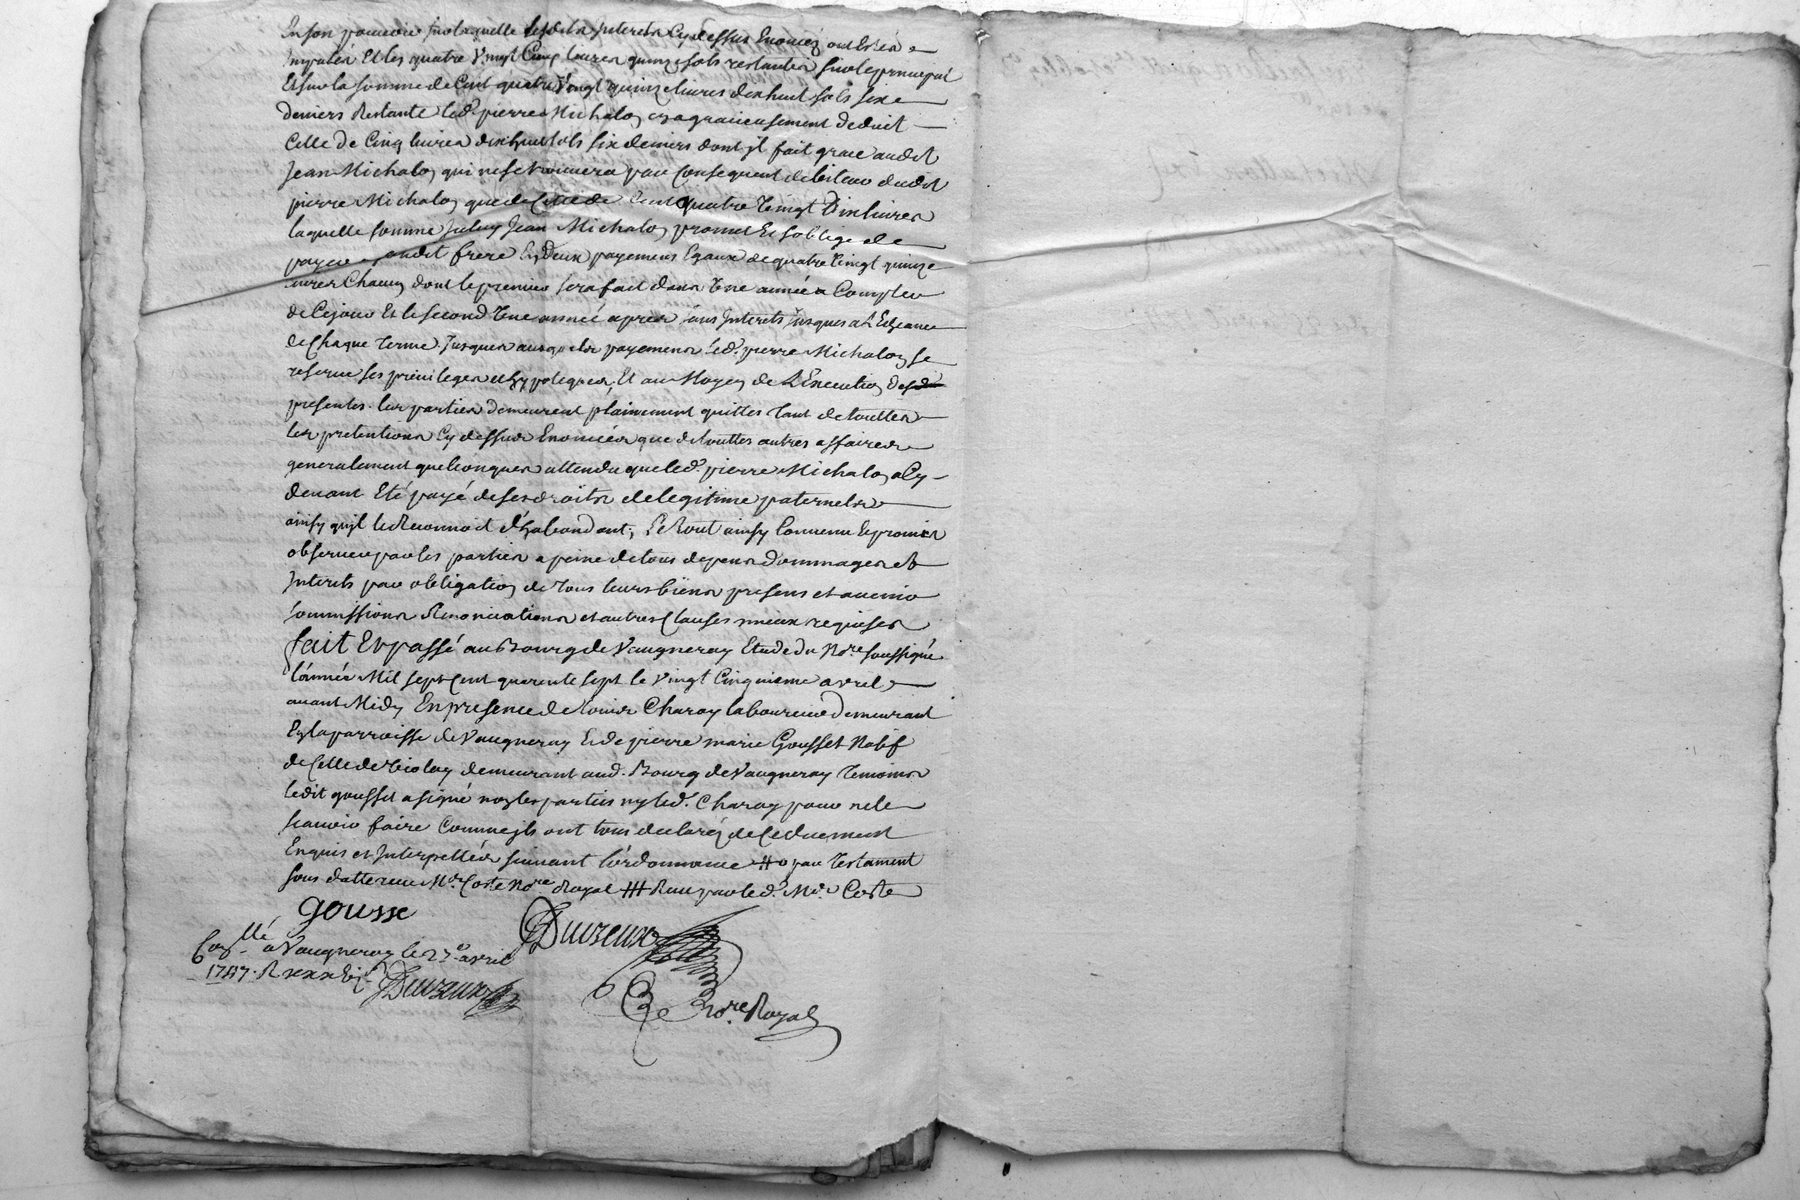 En son pouvoir sur laquelle lesdits Interets Cy dessus Enoncez ont Eté
Imputés Et les quatre Vingt Cinq livres quinze sols restantes sur le principal
Et sur la somme de Cent quatre Vingt quinze livres dix huit sols six
deniers Restante led. pierre Michalon a gracieusement deduit
Celle de Cinq livres dix huit sols six deniers dont jl fait grace audit
Jean Michalon qui ne se trouvera par Consequent debiteur dudit
pierre Michalon que de Celle de Cent quatre Vingt Dix livres
laquelle somme Icelluy Jean Michalon promet Et soblige de
payer audit frere En Deux payemens Egaux de quatre Vingt quinze
livres Chacun dont le premier sera fait dans Une année a Compter
de Cejour Et le second Une année apres sans Interets Jusques a L'Echeance
de Chaque terme. Jusques ausquels payemens led. pierre Michalon se
reserve ses privileges et hypoteques, Et au Moyen de L'Execution des
presentes les parties demeurent plainement quittes tant de touttes
les pretentions Cy dessus Enoncées que de touttes autres affaires
generalement quelconques attendu que led. pierre Michalon a Cy
devant Eté payé de ses droits de legitime paternels
ainsy qu'jl le Reconnoit d'habondant; Le tout ainsy Convenu Et promis
observer par les parties a peine de tous depens dommages et
Interets par obligation de tous leurs biens presens et avenir
soumissions Renonciations et autres Clauses mieux requises
fait Et passé au Bourg de Vaugneray Etude du Nore soussigné
l'année Mil sept Cent quarente sept le vingt Cinquieme avril
avant Midy En presence de Charoy laboureur demeurant
En la parroisse de Vaugneray Et de pierre marie Gousset Natif
de Celle de demeurant aud. Bourg de Vaugneray temoins
ledit gousset a signé non les parties ny led. Charoy pour ne le
scavoir faire Comme jls ont tous declaré de Ce duement
Enquis et Interpellés suivant l'ordonnance # par testament
sous datte recu Me Coste Nore Royal ## Recu par led. Me Coste
gousse
Conllé a Vaugneray le 27e avril
1747. R
Nore Royal